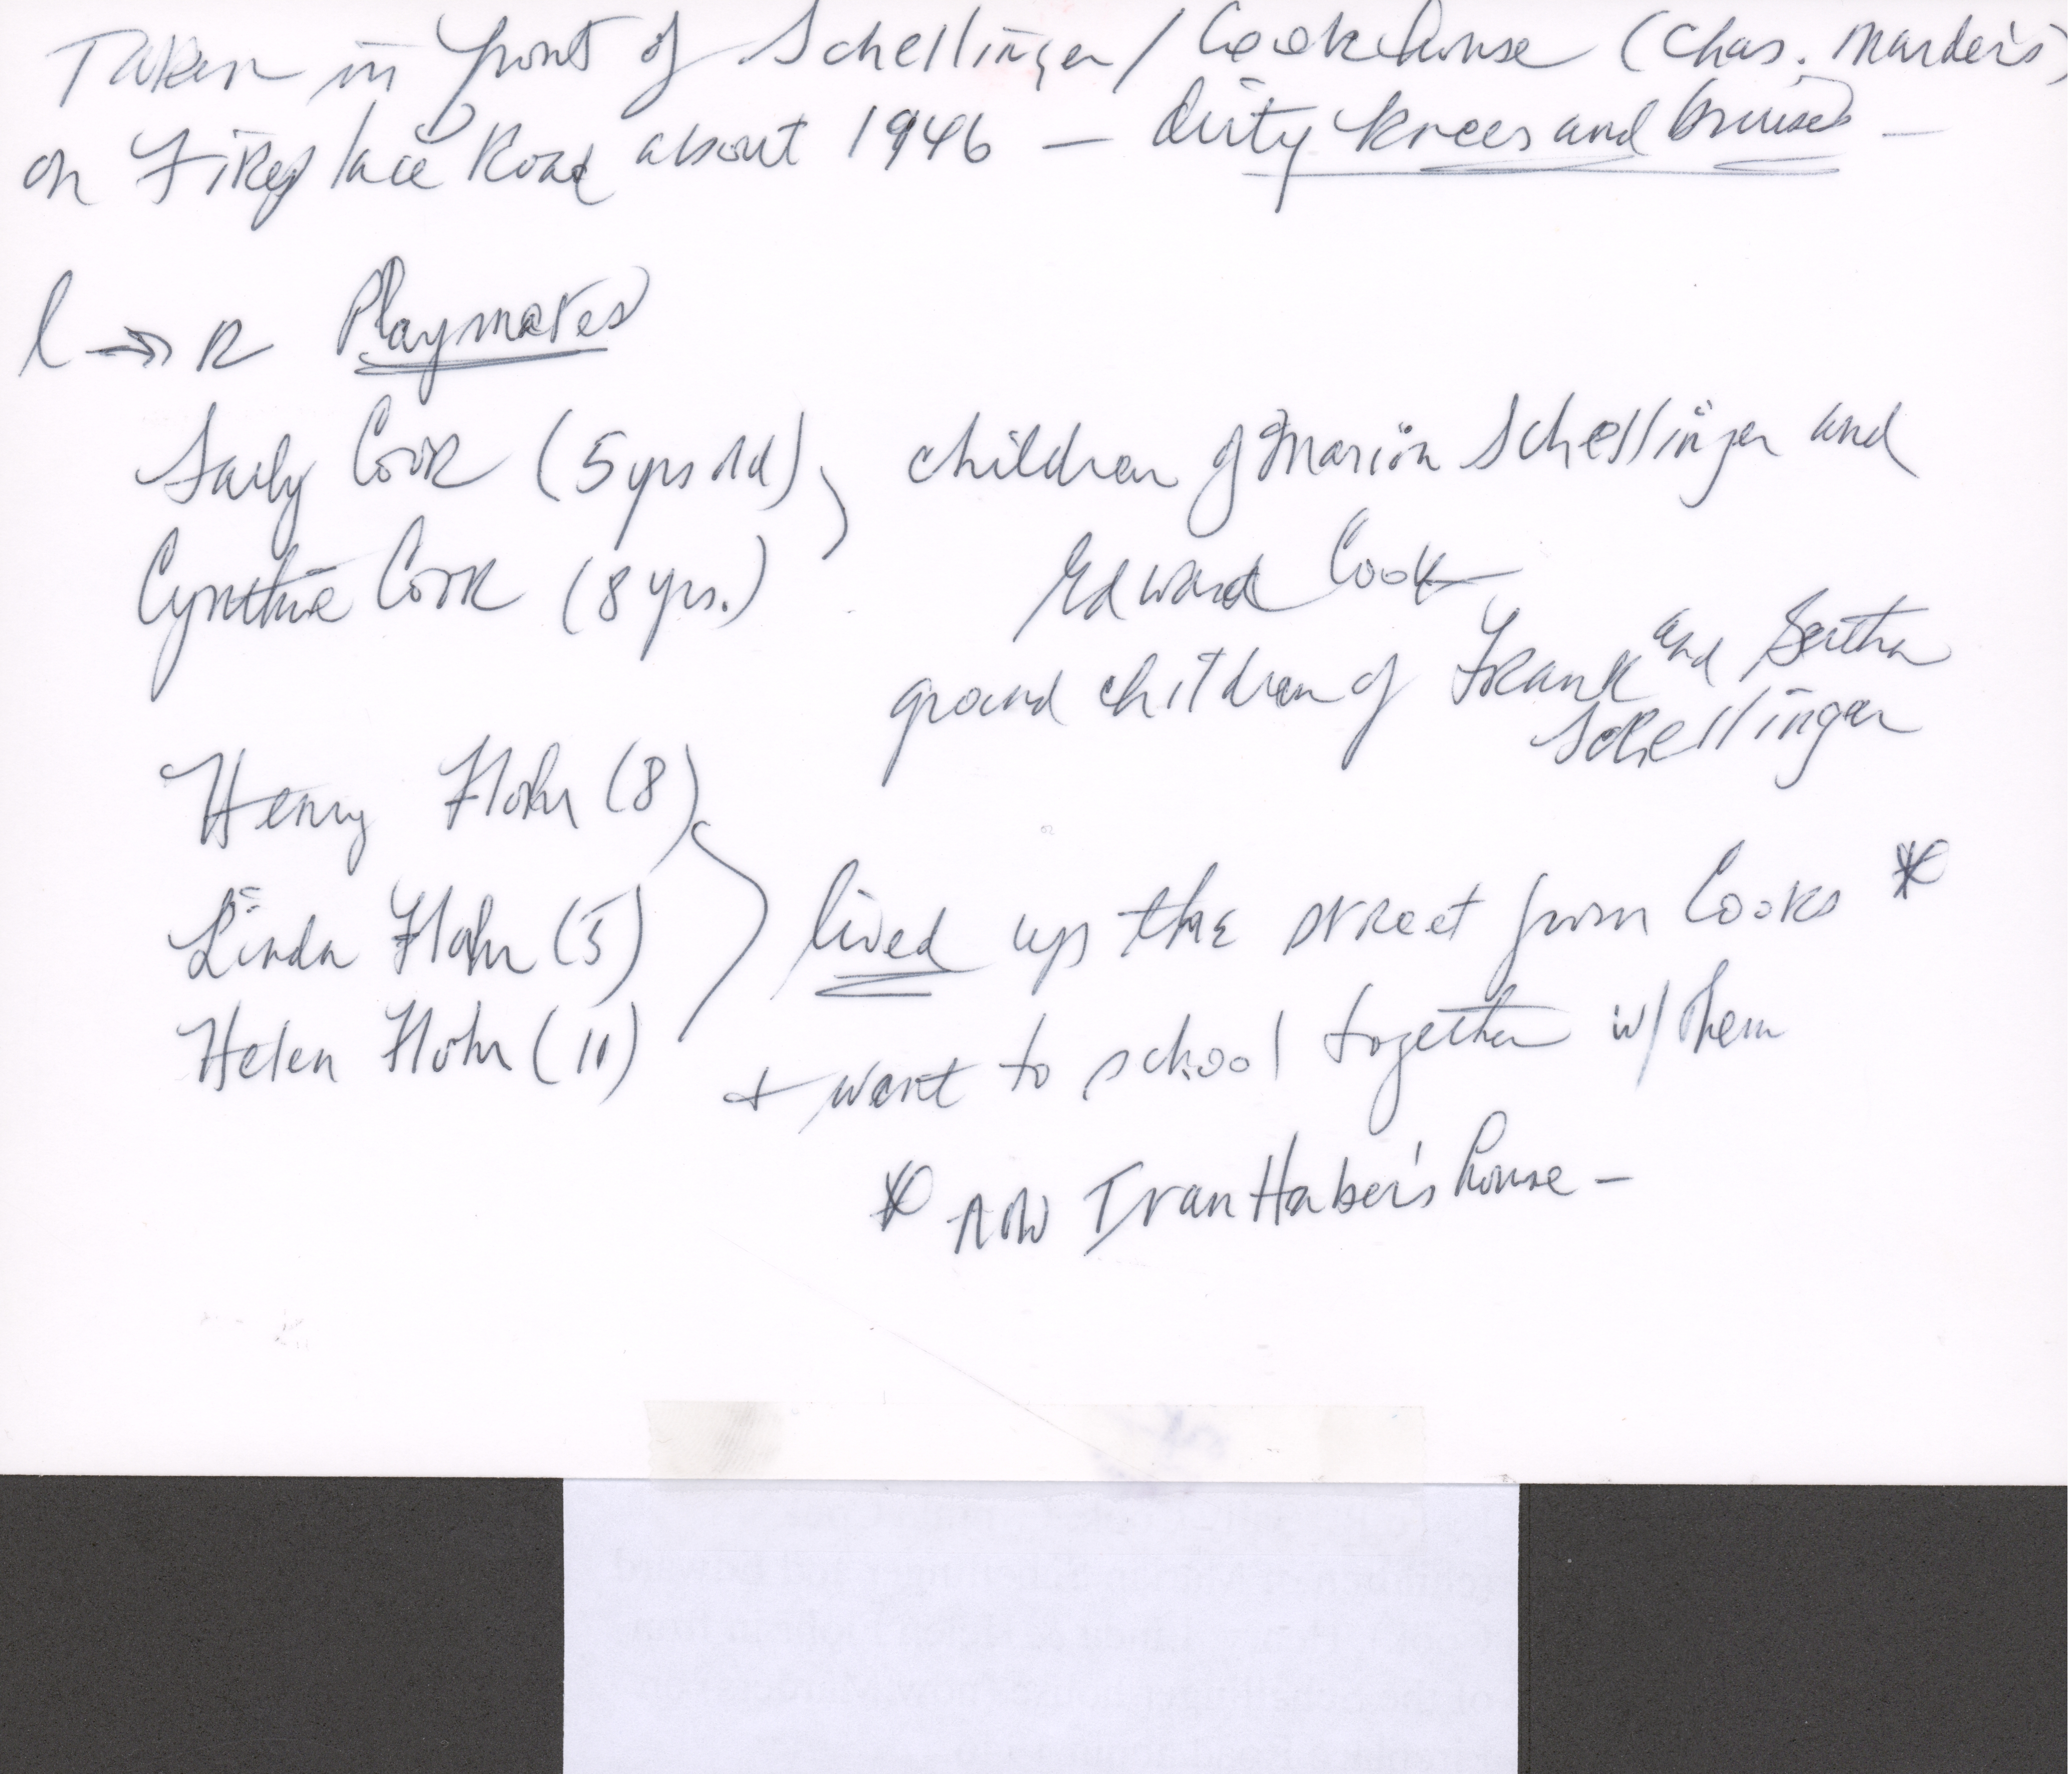 Taken in front of Schellinger / Cook house (Chas. Marder's)
on Fireplace Road about 1946 — dirty knees and bruises —
l → R Playmates
Sally Cook (5 yrs old), children of Marion Schellinger and
Cynthia Cook (8 yrs.) Edward Cook
grand children of Frank and Bertha
Schellinger
Henry Flohr (8)
Linda Flohr (5) lived up the street from Cooks *
Helen Flohr (11) + went to school together w/ them
* now Ivan Haber's house —